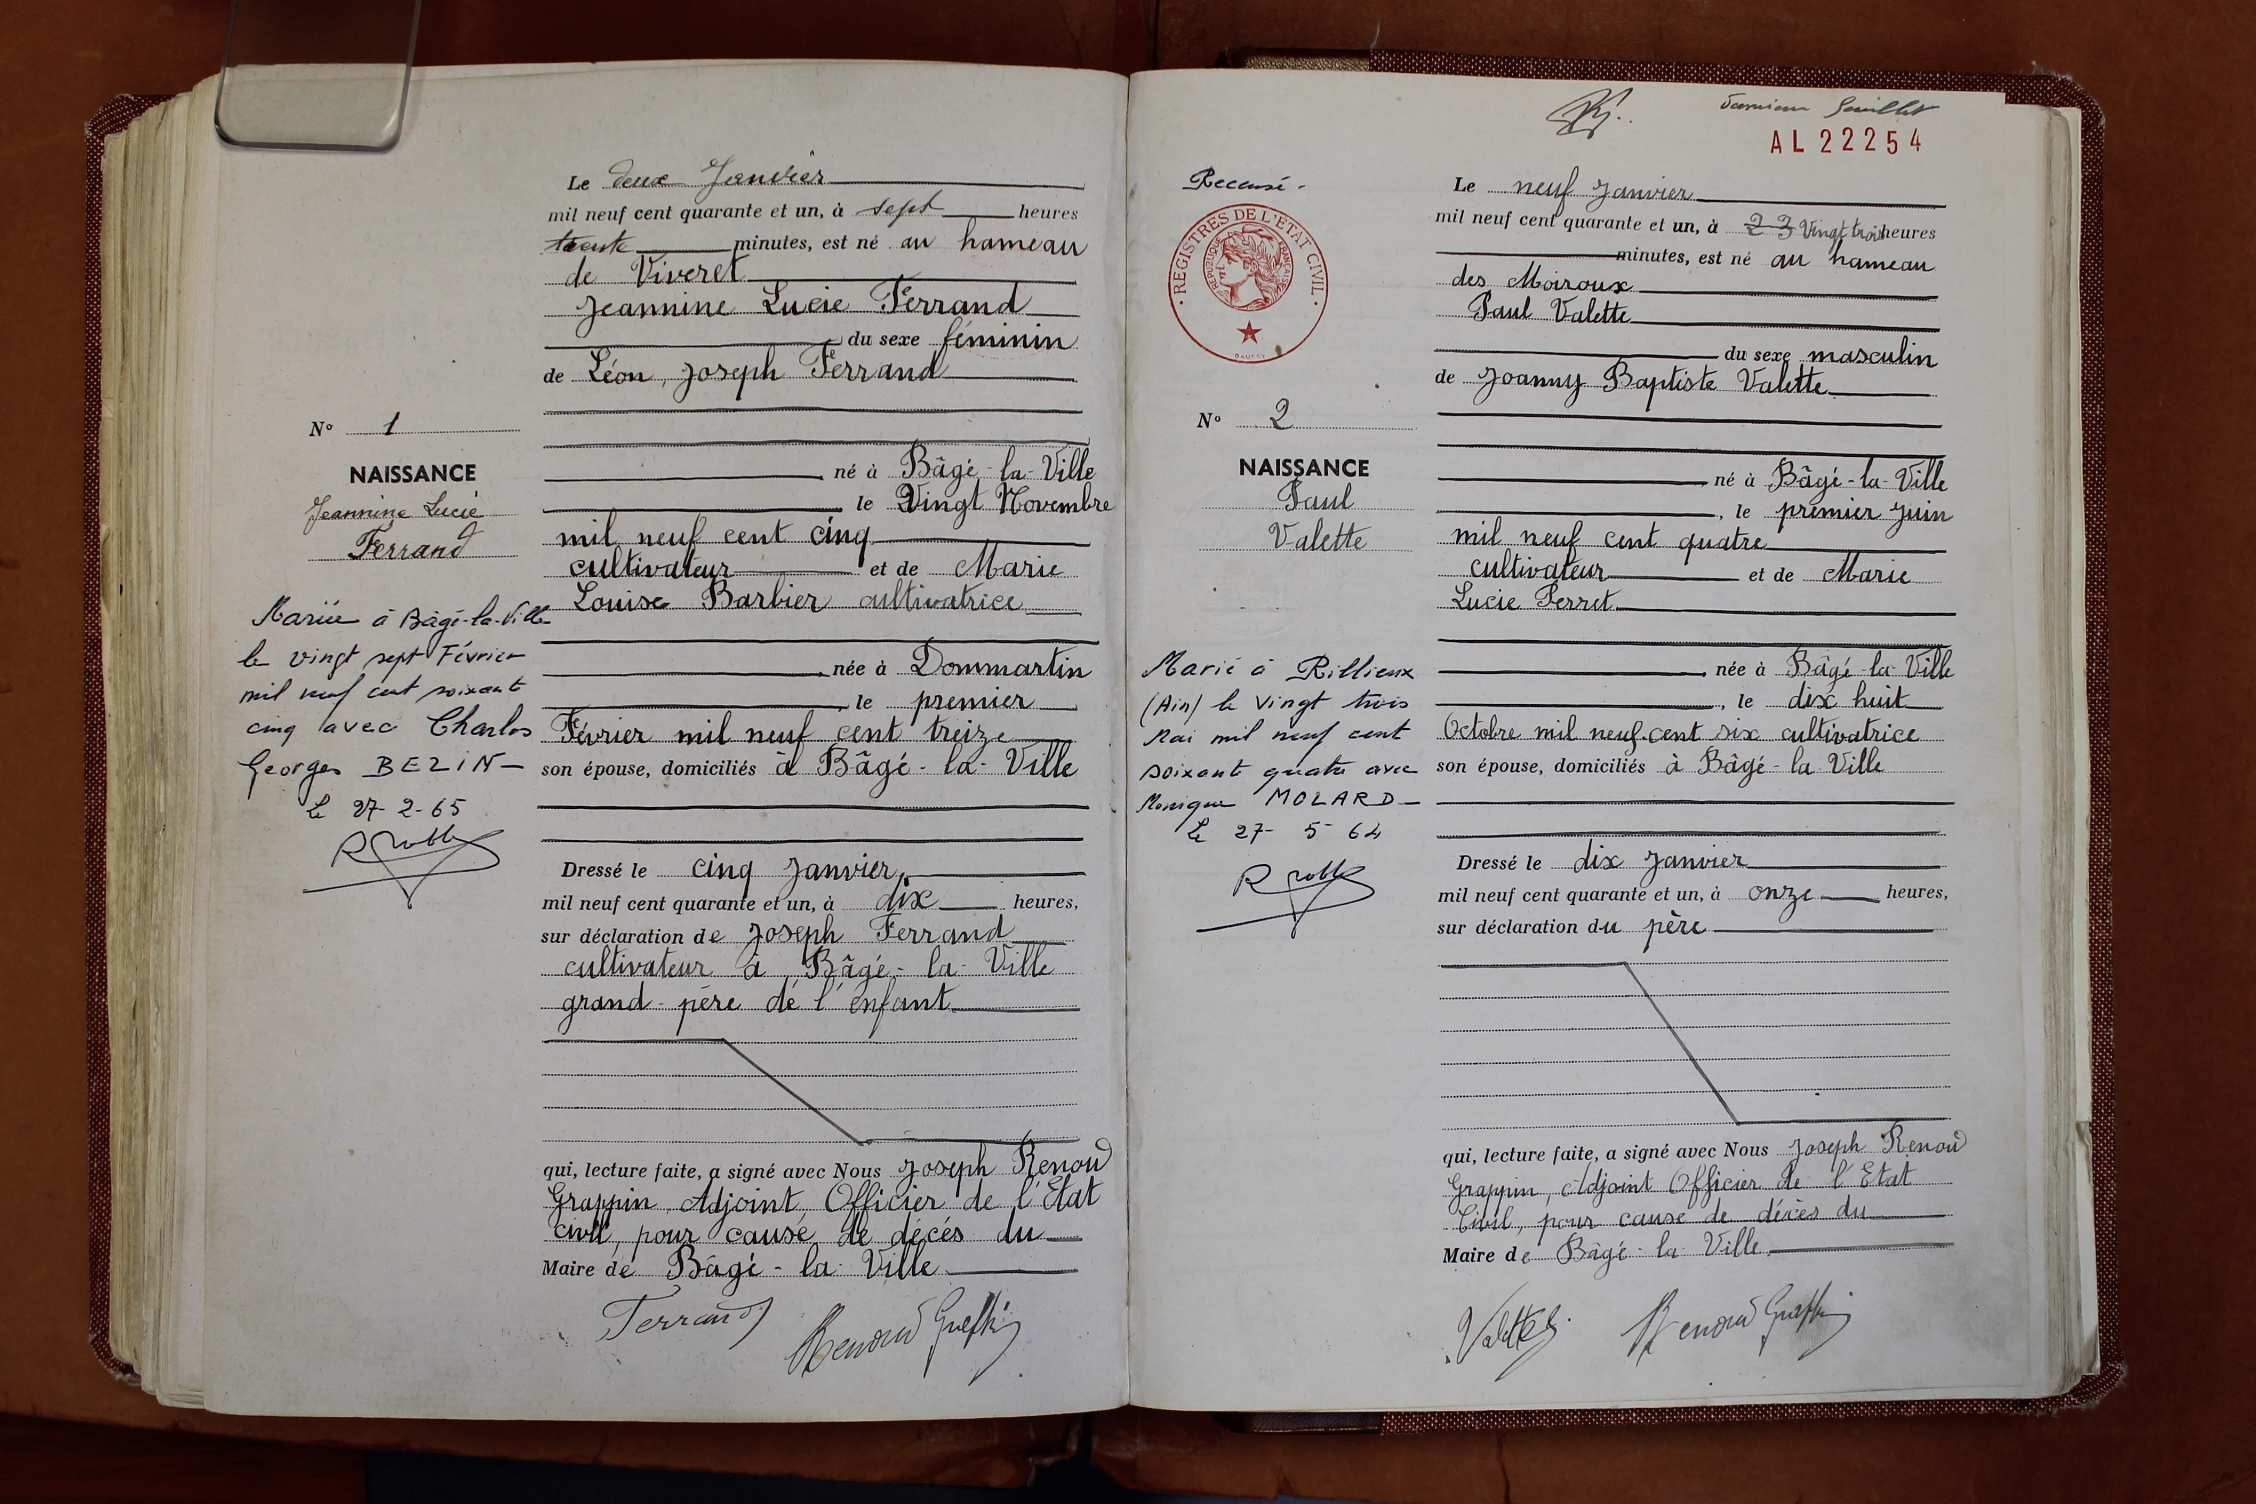 Le deux Janvier
mil neuf cent quarante et un, à sept heures
trente minutes, est né au hameau
de Viveret
Jeannine Lucie Ferrand
du sexe féminin
de Léon, Joseph Ferrand
N° 1
né à Bâgé-la-Ville
NAISSANCE
le Vingt Novembre
Jeannine Lucie
Ferrand
mil neuf cent cinq
cultivateur et de Marie
Louise Barbier cultivatrice
née à Dommartin
le premier
Février mil neuf cent treize
son épouse, domiciliés à Bâgé-la-Ville
Mariée à Bâgé-la-Ville
le vingt sept Février
mil neuf cent soixante
cinq avec Charles
Georges BEZIN
Le 27-2-65
Dressé le cinq Janvier
mil neuf cent quarante et un, à dix heures,
sur déclaration de Joseph Ferrand
cultivateur à Bâgé-la-Ville
grand-père de l'enfant
qui, lecture faite, a signé avec Nous Joseph Renoud
Grappin, Adjoint, Officier de l'Etat
civil, pour cause de décés du
Maire de Bâgé-la-Ville
Ferrand
Renoud Grappin
feuillet
AL 22254
Recensé.
REGISTRES DE L'ETAT CIVIL
REPUBLIQUE FRANÇAISE
Le neuf Janvier
mil neuf cent quarante et un, à 23 Vingt trois heures
minutes, est né au hameau
des Moiroux
Paul Valette
du sexe masculin
de Joanny Baptiste Valette
N° 2
NAISSANCE
Paul
Valette
né à Bâgé-la-Ville
, le premier Juin
mil neuf cent quatre
cultivateur et de Marie
Lucie Perret
née à Bâgé-la-Ville
, le dix huit
Octobre mil neuf cent six cultivatrice
son épouse, domiciliés à Bâgé-la Ville
Marié à Rillieux
(Ain) le vingt trois
Mai mil neuf cent
soixante quatre avec
Monique MOLARD
Le 27-5-64
Dressé le dix Janvier
mil neuf cent quarante et un, à onze heures,
sur déclaration du père
qui, lecture faite, a signé avec Nous Joseph Renoud
Grappin, Adjoint Officier de l'Etat
Civil, pour cause de décès du
Maire de Bâgé-la Ville
Valette
Renoud Grappin